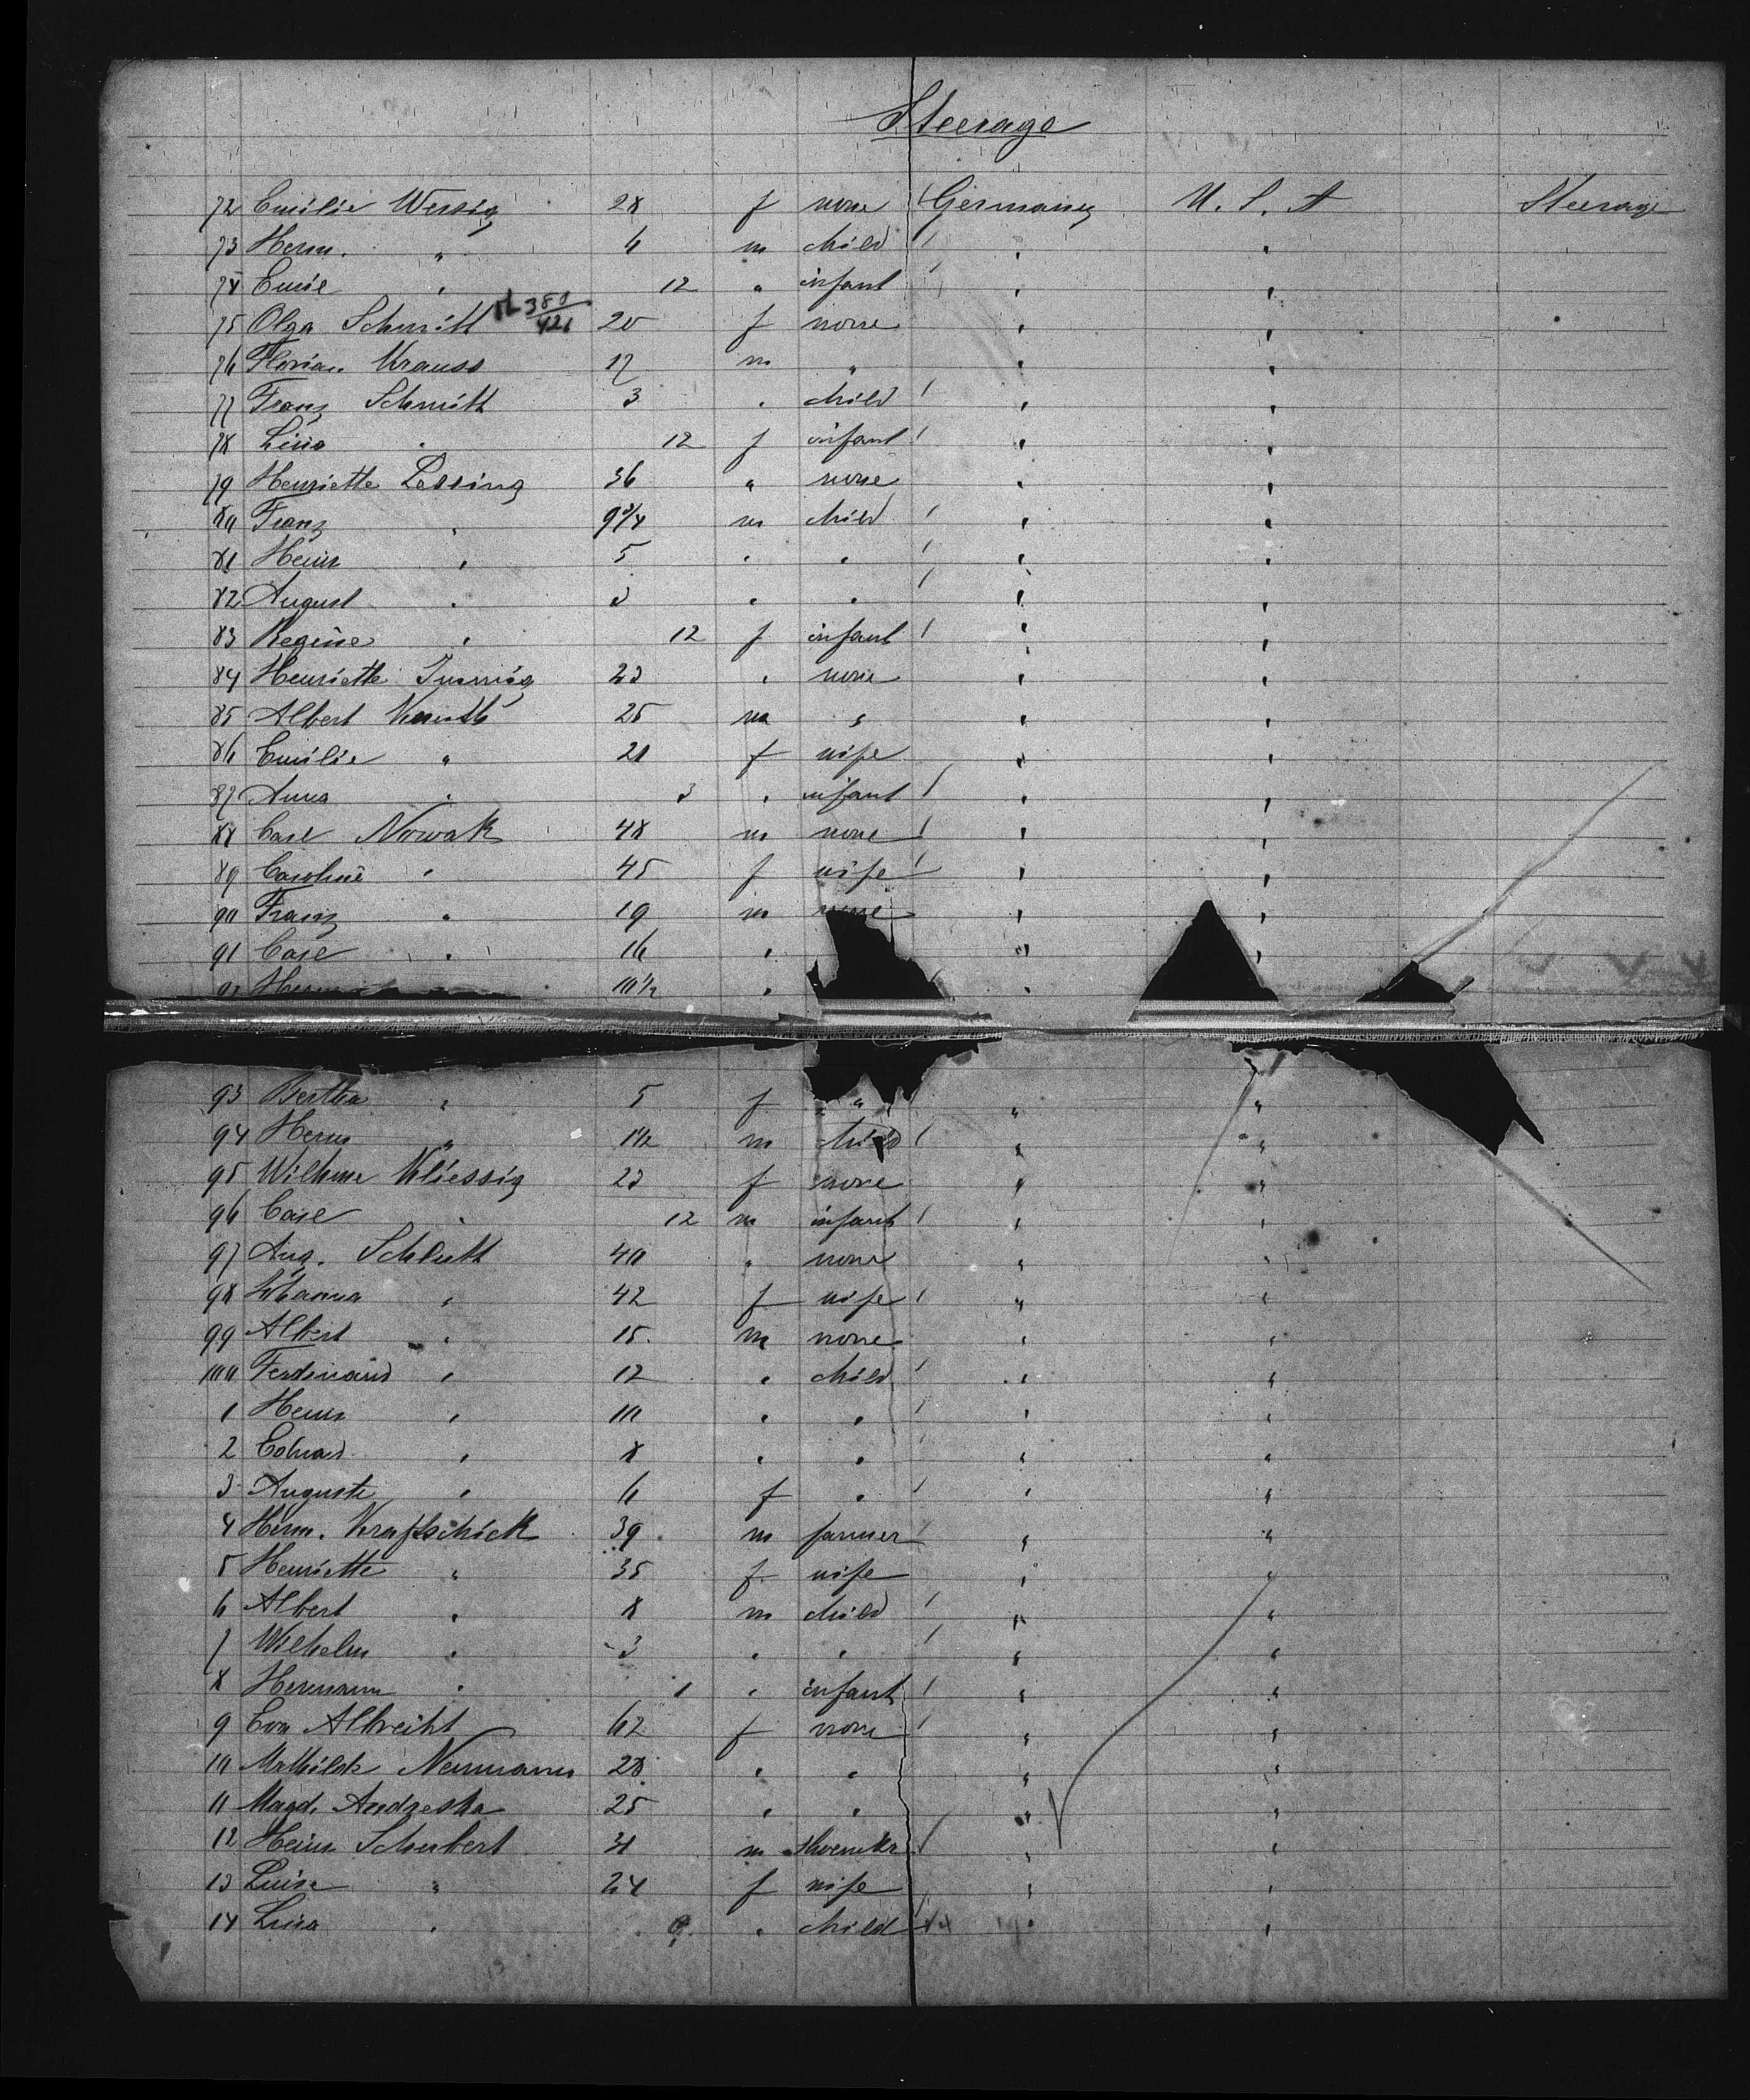 Steerage
72 Emilie Wessig 28 f none Germany U. S. A Steerage
73 Herm. " 6 m child " "
74 Emil " 12 " infant " "
75 Olga Schmitt 20 f none " "
76 Florian Krauss 17 m " " "
77 Franz Schmitt 3 " child " "
78 Lina " 12 f infant " "
79 Henriette Lessing 36 " none " "
80 Franz " 9 3/4 m child " "
81 Heinr " 5 " " " "
82 August " 3 " " " "
83 Regine " 12 f infant " "
84 Henriette 23 " none " "
85 Albert 25 m " " "
86 Emilie " 21 f wife " "
87 Anna " 3 " infant " "
88 Carl Nowak 48 m none " "
89 Caroline " 45 f wife " "
90 Franz " 19 m none " "
91 Carl " 16 " " "
92 Herm 10 1/2 " "
93 Bertha " 5 f " " "
94 Herm " 1 1/2 m child " "
95 Wilhme Kliessig 23 f none " "
96 Carl " 12 m infant " "
97 Aug. Schlutt 40 " none " "
98 Johanna " 42 f wife " "
99 Albert " 15 m none " "
100 Ferdinand " 12 " child " "
1 Heinr " 10 " " " "
2 Eduard " 8 " " " "
3 Auguste " 6 f " " "
4 Herm. Kraftschick 39 m farmer " "
5 Henriette " 35 f wife " "
6 Albert " 8 m child " "
7 Wilhelm " 3 " " " "
8 Hermann " 1 " infant " "
9 Eva Albrecht 62 f none " "
10 Mathilde Neumann 28 " " " "
11 Magd. Andreska 25 " " " "
12 Heinr Schubert 31 m " "
13 Luise " 24 f wife " "
14 Lina " 9 " child " "